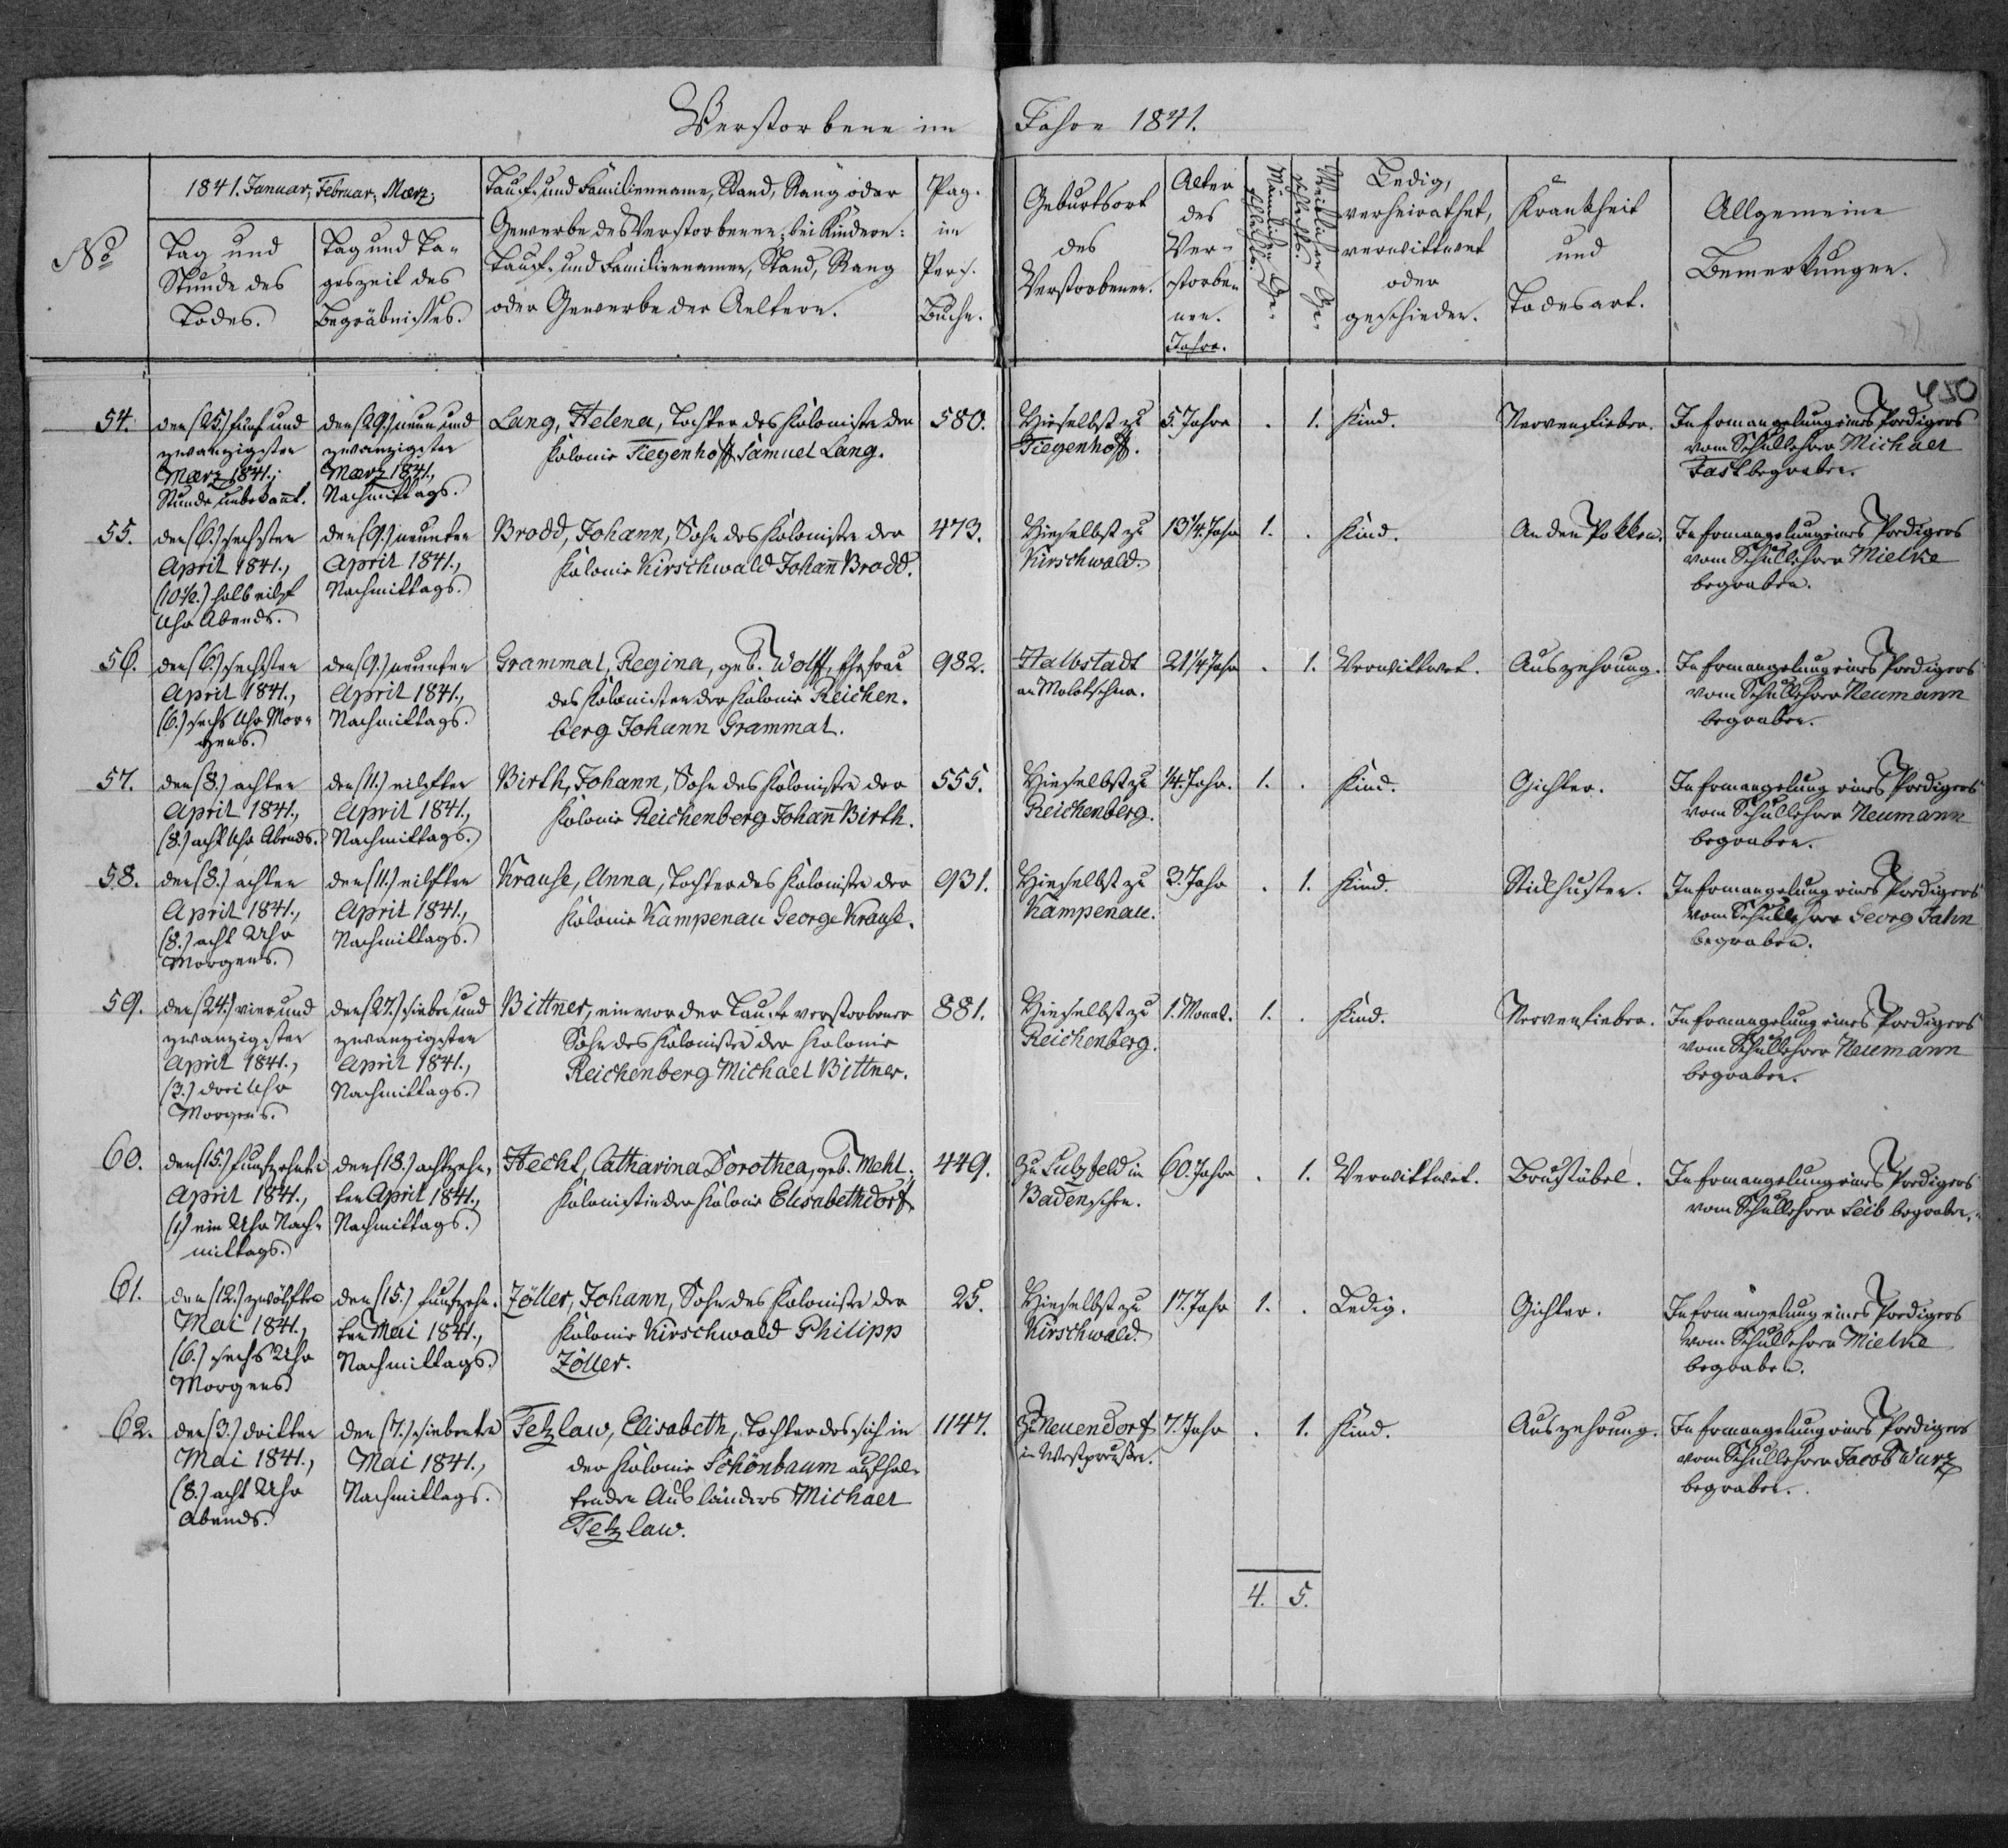 Verstorbene im Jahre 1841.
450
No
1841. Januar; Februar; Maerz;
Tag und
Stunde des
Todes.
Tag und Ta-
geszeit des
Begräbnisses.
Tauf- und Familienname, Stand, Rang oder
Gewerbe des Verstorbenen; bei Kindern:
Tauf- und Familiennamen, Stand, Rang
oder Gewerbe der Aeltern.
Pag.
im
Pers.
Buche.
Geburtsort
des
Verstorbenen.
Alter
des
Ver-
storbe-
nen.
Jahre.
Männlichen Ge-
schlechts.
Weiblichen Ge-
schlechts.
Ledig,
verheirathet,
verwittwet
oder
geschieden.
Krankheit
und
Todesart.
Allgemeine
Bemerkungen.
54.
den (25.) fünf und
zwanzigsten
Maerz 1841.;
Stunde unbekannt.
den (29.) neun und
zwanzigsten
Maerz 1841.,
Nachmittags.
Lang, Helena, Tochter des Kolonisten der
Kolonie Tiegenhoff Samuel Lang.
580.
Hieselbst zu
Tiegenhoff.
5. Jahre
.
1.
Kind.
Nervenfieber.
In Ermangelung eines Predigers
vom Schullehrer Michael
Fast begraben.
55.
den (6.) sechsten
April 1841.,
(10½.) halb eilf
Uhr Abends.
den (9.) neunten
April 1841.,
Nachmittags.
Brodd, Johann, Sohn des Kolonisten der
Kolonie Kirschwald Johann Brodd.
473.
Hieselbst zu
Kirschwald.
13¼. Jahr
1.
.
Kind.
An den Pokken.
In Ermangelung eines Predigers
vom Schullehrer Mielke
begraben.
56.
den (6.) sechsten
April 1841.,
(6.) sechs Uhr Mor-
gens.
den (9.) neunten
April 1841.,
Nachmittags.
Grammal, Regina, geb. Wolff, Ehefrau
des Kolonisten der Kolonie Reichen-
berg Johann Grammal.
982.
Halbstadt
an Molotschna.
21¼ Jahr
.
1.
Verwittwet.
Auszehrung.
In Ermangelung eines Predigers
vom Schullehrer Neumann
begraben.
57.
den (8.) achten
April 1841.,
(8.) acht Uhr Abends.
den (11.) eilften
April 1841.,
Nachmittags.
Birth, Johann, Sohn des Kolonisten der
Kolonie Reichenberg Johann Birth.
555.
Hieselbst zu
Reichenberg.
¼. Jahr.
1.
.
Kind.
Gichter.
In Ermangelung eines Predigers
vom Schullehrer Neumann
begraben.
58.
den (8.) achten
April 1841.,
(8.) acht Uhr
Morgens.
den (11.) eilften
April 1841.,
Nachmittags.
Krause, Anna, Tochter des Kolonisten der
Kolonie Kampenau George Krause.
931.
Hieselbst zu
Kampenau.
3. Jahr
.
1.
Kind.
Stickhusten.
In Ermangelung eines Predigers
vom Schullehrer Georg Jahn
begraben.
59.
den (24.) vier und
zwanzigsten
April 1841.,
(3.) drei Uhr
Morgens.
den (27.) sieben und
zwanzigsten
April 1841.,
Nachmittags.
Bittner, ein vor der Taufe verstorbener
Sohn des Kolonisten der Kolonie
Reichenberg Michael Bittner.
881.
Hieselbst zu
Reichenberg.
1. Monat.
1.
.
Kind.
Nervenfieber.
In Ermangelung eines Predigers
vom Schullehrer Neumann
begraben.
60.
den (15.) fünfzehnten
April 1841.,
(1.) ein Uhr Nach-
mittags.
den (18.) achtzehn-
ten April 1841.,
Nachmittags.
Hecht, Catharina Dorothea, geb. Mehl;
Kolonistin der Kolonie Elisabethdorf
449.
Zu Sulzfeld in
Badenschen.
60. Jahre
.
1.
Verwittwet.
Brustübel.
In Ermangelung eines Predigers
vom Schullehrer Leib begraben.
61.
den (12.) zwölften
Mai 1841.,
(6.) sechs Uhr
Morgens
den (15.) fünfzehn-
ten Mai 1841.,
Nachmittags.
Zöller, Johann, Sohn des Kolonisten der
Kolonie Kirschwald Philipp
Zöller.
25.
Hieselbst zu
Kirschwald.
17. Jahr
1.
.
Ledig.
Gichter.
In Ermangelung eines Predigers
vom Schullehrer Mielke
begraben.
62.
den (3.) dritten
Mai 1841.,
(8.) acht Uhr
Abends.
den (7.) siebenten
Mai 1841.,
Nachmittags.
Tetzlaw, Elisabeth, Tochter des sich in
der Kolonie Schönbaum aufhal-
tenden Ausländers Michael
Tetzlaw.
1147.
Zu Neuendorf
in Westpreußen.
7. Jahr
.
1.
Kind.
Auszehrung.
In Ermangelung eines Predigers
vom Schullehrer Jacob Wurz
begraben.
4.
5.